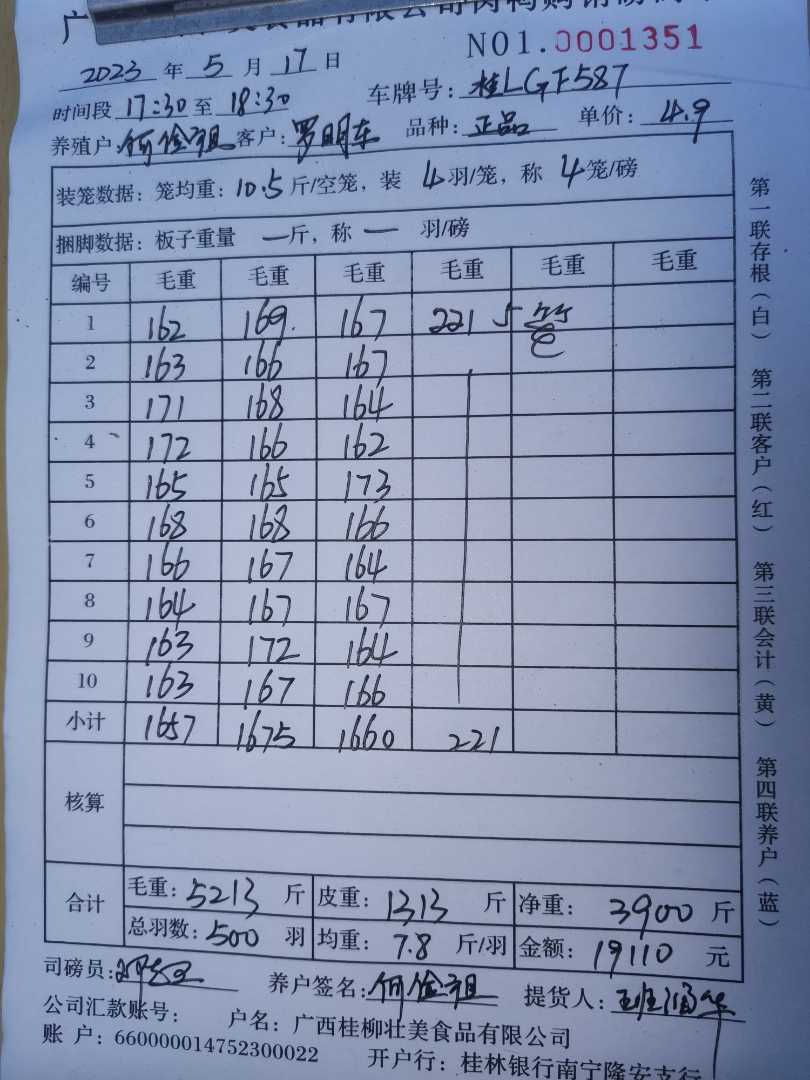 NO1.0001351
2023 年 5 月 17 日
时间段 17:30 至 18:30 车牌号: 桂LGF587
养殖户: 何俭祖 客户: 罗明东 品种: 正品 单价: 4.9
装笼数据: 笼均重: 10.5 斤/空笼, 装 4 羽/笼, 称 4 笼/磅
捆脚数据: 板子重量 一 斤, 称 一 羽/磅
编号 毛重 毛重 毛重 毛重 毛重 毛重
1 162 169. 167 221 5
2 163 166 167
3 171 168 164
4 172 166 162
5 165 165 173
6 168 168 166
7 166 167 164
8 164 167 167
9 163 172 164
10 163 167 166
小计 1657 1675 1660 221
核算
合计 毛重: 5213 斤 皮重: 1313 斤 净重: 3900 斤
总羽数: 500 羽 均重: 7.8 斤/羽 金额: 19110 元
司磅员: 养户签名: 何俭祖 提货人:
公司汇款账号: 户名: 广西桂柳壮美食品有限公司
账 户: 660000014752300022 开户行: 桂林银行南宁隆安支行
第一联存根(白) 第二联客户(红) 第三联会计(黄) 第四联养户(蓝)